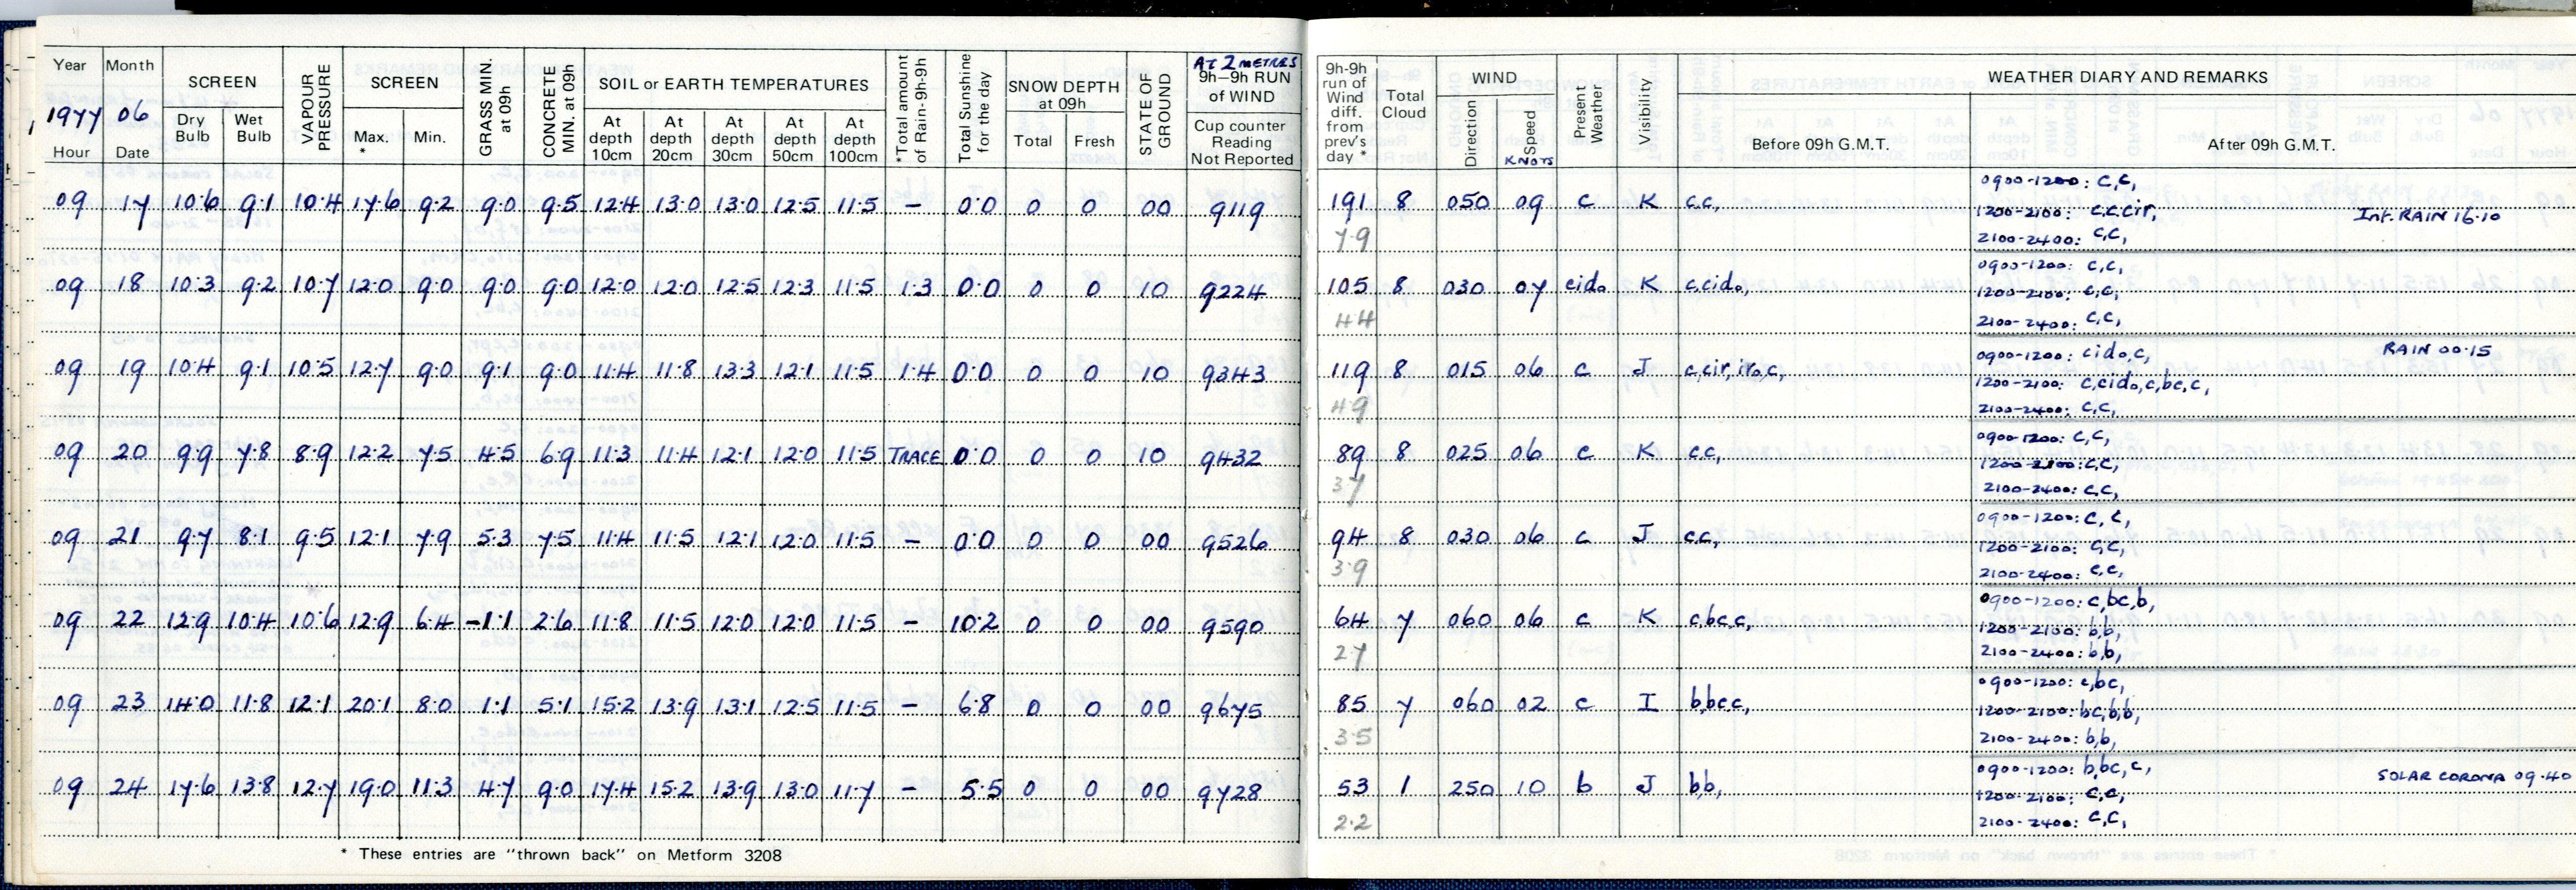 Year Month SCREEN VAPOUR PRESSURE SCREEN GRASS MIN. at 09h CONCRETE MIN. at 09h SOIL or EARTH TEMPERATURES *Total amount of Rain-9h-9h Total Sunshine for the day SNOW DEPTH at 09h STATE OF GROUND AT 2 METRES 9h–9h RUN of WIND
1977 06 Dry Bulb Wet Bulb Max. * Min. At depth 10cm At depth 20cm At depth 30cm At depth 50cm At depth 100cm Total Fresh Cup counter Reading Not Reported
Hour Date
09 17 10.6 9.1 10.4 17.6 9.2 9.0 9.5 12.4 13.0 13.0 12.5 11.5 – 0.0 0 0 00 9119
09 18 10.3 9.2 10.7 12.0 9.0 9.0 9.0 12.0 12.0 12.5 12.3 11.5 1.3 0.0 0 0 10 9224
09 19 10.4 9.1 10.5 12.7 9.0 9.1 9.0 11.4 11.8 13.3 12.1 11.5 1.4 0.0 0 0 10 9343
09 20 9.9 7.8 8.9 12.2 7.5 4.5 6.9 11.3 11.4 12.1 12.0 11.5 TRACE 0.0 0 0 10 9432
09 21 9.7 8.1 9.5 12.1 7.9 5.3 7.5 11.4 11.5 12.1 12.0 11.5 – 0.0 0 0 00 9526
09 22 12.9 10.4 10.6 12.9 6.4 -1.1 2.6 11.8 11.5 12.0 12.0 11.5 – 10.2 0 0 00 9590
09 23 14.0 11.8 12.1 20.1 8.0 1.1 5.1 15.2 13.9 13.1 12.5 11.5 – 6.8 0 0 00 9675
09 24 17.6 13.8 12.7 19.0 11.3 4.7 9.0 17.4 15.2 13.9 13.0 11.7 – 5.5 0 0 00 9728
* These entries are "thrown back" on Metform 3208
9h-9h run of Wind diff. from prev's day * Total Cloud WIND Direction Speed KNOTS Present Weather Visibility WEATHER DIARY AND REMARKS
Before 09h G.M.T. After 09h G.M.T.
0900-1200: c,c,
191 8 050 09 c K c,c, 1200-2100: c,c,cir, Int. RAIN 16.10
7.9 2100-2400: c,c,
0900-1200: c,c,
105 8 030 07 cido K c,cido, 1200-2100: c,c,
4.4 2100-2400: c,c,
0900-1200: cido,c, RAIN 00.15
119 8 015 06 c J c,cir,iro,c, 1200-2100: c,cido,c,bc,c,
4.9 2100-2400: c,c,
0900-1200: c,c,
89 8 025 06 c K c,c, 1200-2100: c,c,
3.7 2100-2400: c,c,
0900-1200: c,c,
94 8 030 06 c J c,c, 1200-2100: c,c,
3.9 2100-2400: c,c,
0900-1200: c,bc,b,
64 7 060 06 c K c,bc,c, 1200-2100: b,b,
2.7 2100-2400: b,b,
0900-1200: c,bc,
85 7 060 02 c I b,bc,c, 1200-2100: bc,b,b,
3.5 2100-2400: b,b,
0900-1200: b,bc,c, SOLAR CORONA 09.40
53 1 250 10 b J b,b, 1200-2100: c,c,
2.2 2100-2400: c,c,